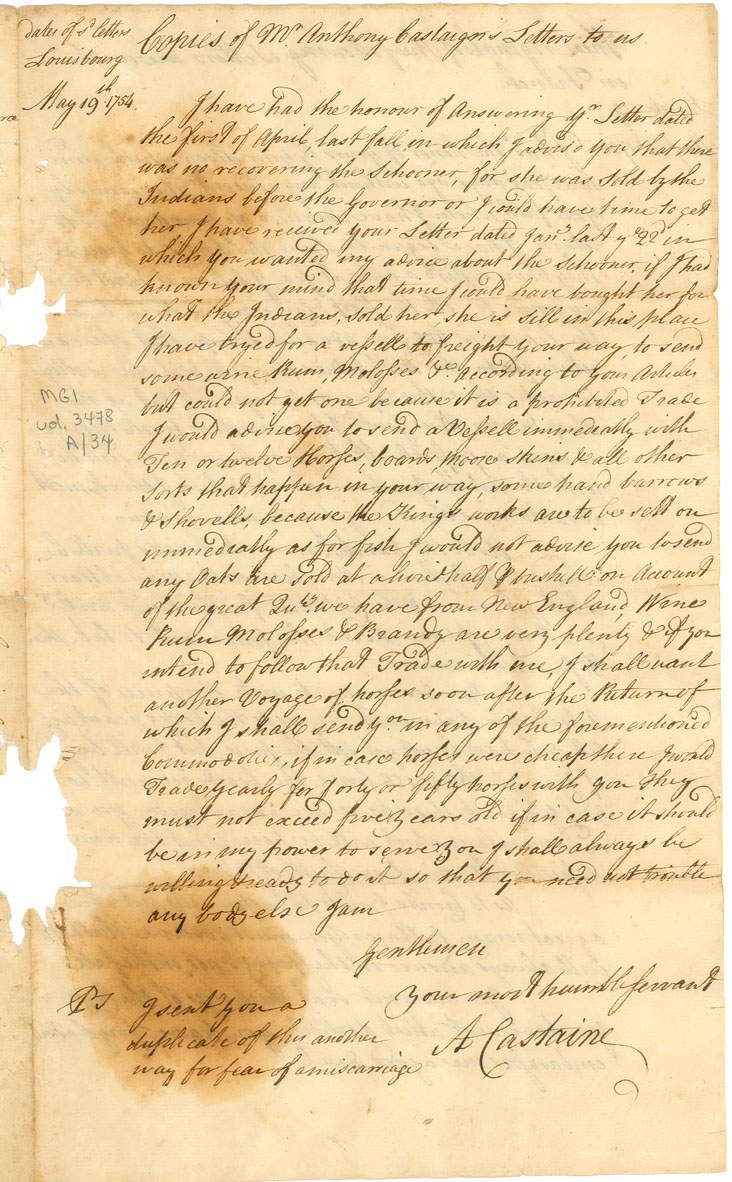 dates of sd letters
Louisbourg
May 19th 1754
Copies of Mr Anthony Castaigns Letters to us
I have had the honour of Answering yr Letter dated
the first of April, last fall in which I advis'd you that there
was no recovering the Schooner, for she was sold by the
Indians before the Governor or I could have time to get
her, I have received your Letter dated Jany last ye 22d in
which you wanted my advice about the Schooner, if I had
known your mind that time I could have bought her for
what the Indians, sold her, she is sill in this place
I have tryed for a vessell to freight your way, to send
some wine Rum, Molosses &c According to your Articles
but could not get one because it is a prohibited Trade
I would advise you to send a Vessell immediatly with
Ten or twelve Horses, boards Moose skins & all other
sorts that happen in your way, some hand barrows
& Shovells, because the Kings works are to be sett on
immediatly as for fish I would not advise you to send
any Oats are sold at a livre & half p bushell on Account
of the great Quty. we have from New England, Wine
Rum Molosses & Brandy are very plenty & if you
intend to follow that Trade with me, I shall want
another Voyage of horses soon after the Return of
which I shall send you in any of the forementioned
Commodoties, if in case horses were cheap there I would
Trade yearly for forty or fifty horses with you they
must not exceed five years old if in case it should
be in my power to serve you I shall always be
willing & ready to do it so that you need not trouble
any body else I am
Gentlemen
your most humble servant
A Castaine
Ps I sent you a
duplicate of this another
way for fear of a miscarriage
MG1
vol. 3478
A/34